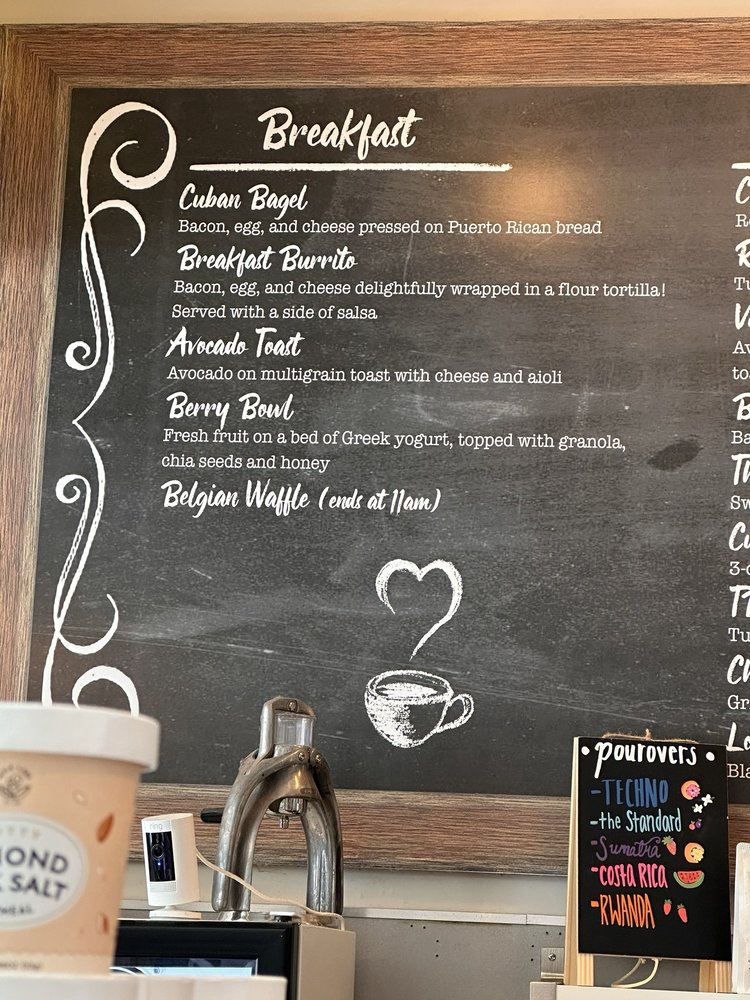 Breakfast
Cuban Bagel
Bacon, egg, and cheese pressed on Puerto Rican bread
Breakfast Burrito
Bacon, egg, and cheese delightfully wrapped in a flour tortilla!
Served with a side of salsa
Avocado Toast
Avocado on multigrain toast with cheese and aioli
Berry Bowl
Fresh fruit on a bed of Greek yogurt, topped with granola,
chia seeds and honey
Belgian Waffle (ends at 11am)
• pourovers •
-TECHNO
-the Standard
-Sumatra
-Costa Rica
-RWANDA
ring
SALT